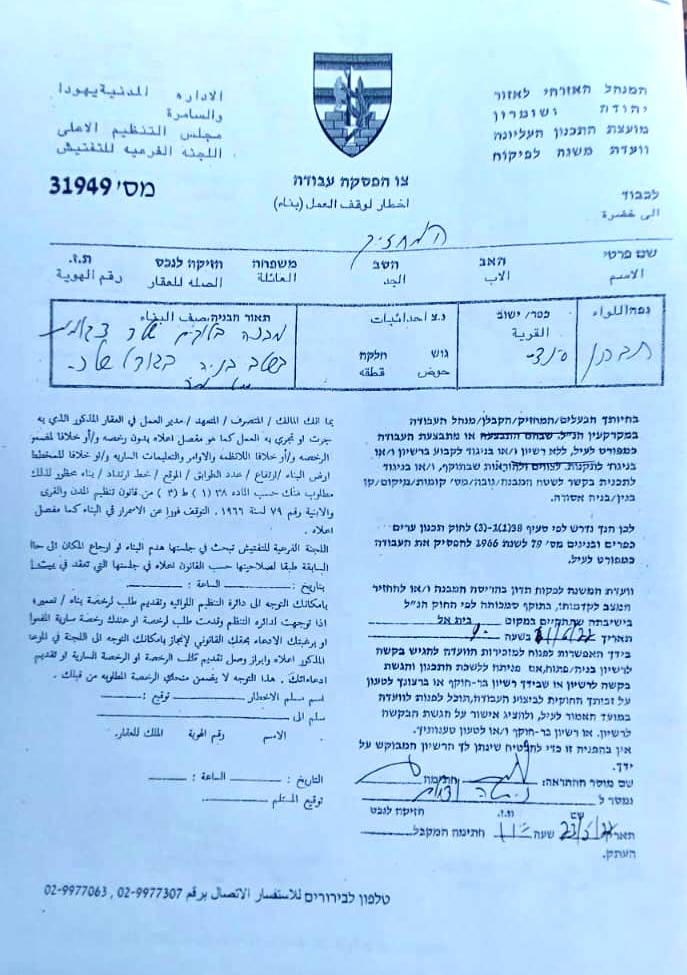 המנהל האזרחי לאזור
יהודה ושומרון
מועצת התכנון העליונה
וועדת משנה לפיקוח
الاداره المدنية يهودا
والسامرة
مجلس التنظيم الاعلى
اللجنه الفرعيه للتفتيش
צו הפסקת עבודה
اخطار لوقف العمل (بناء)
מס' 31949
לכבוד
الى حضرة
המחזיק
שם פרטי האב הסב משפחה זיקה לנכס ת.ז.
الاسم الاب الجد العائلة الصله للعقار رقم الهوية
נפה/اللواء
חברון
כפר/ ישוב
القرية
נ.צ احداثيات
גוש חלקה
حوض قطعه
תאור הבניה/وصف البناء
מבנה בלוקים
בשלב בניה
בהיותך הבעלים/המחזיק/הקבלן/מנהל העבודה
במקרקעין הנ"ל, שבהם התבצעה או מתבצעת העבודה
כמפורט לעיל, ללא רשיון ו/או בניגוד לקבוע ברשיון ו/או
בניגוד לתקנות, לצווים ולהוראות שבתוקף, ו/או בניגוד
לתכנית בקשר לשטח המבנה/גובה/מס' קומות/מיקום/קו
בנין/בניה אסורה.
לכן הנך נדרש לפי סעיף 38(1)-(3) לחוק תכנון ערים
כפרים ובנינים מס' 79 לשנת 1966 להפסיק את העבודה
כמפורט לעיל.
וועדת המשנה לפקוח תדון בהריסת המבנה ו/או להחזיר
המצב לקדמותו, בתוקף סמכותה לפי החוק הנ"ל
בישיבתה שתתקיים במקום בית אל
תאריך בשעה
בידך האפשרות לפנות למזכירות הוועדה להגיש בקשה
לרשיון בניה/פתוח, אם פניתה ללשכת התכנון והגשת
בקשה לרשיון או שבידך רשיון בר-תוקף או ברצונך לטעון
על זכותך החוקית לביצוע העבודה, תוכל לפנות לוועדה
במועד האמור לעיל, ולהציג אישור על הגשת הבקשה
לרשיון, או רשיון בר-תוקף ו/או לטעון טענותיך.
אין בהפניה זו כדי להבטיח שינתן לך הרשיון המבוקש על
ידך.
שם מוסר ההתראה: חתימה
נמסר ל
שם ת.ז. הזיקה לנכס
תאריך שעה חתימת המקבל
העתק.
بما انك المالك / المتصرف / المتعهد / مدير العمل في العقار المذكور الذي به
جرت او تجري به العمل كما هو مفصل اعلاه بدون رخصه و/أو خلافا لمضمون
الرخصه و/أو خلافا للانظمه والاوامر والتعليمات الساريه و/أو خلافا للمخطط
ارض البناء /ارتفاع / عدد الطوابق / الموقع / خط ارتداد / بناء محظور لذلك
مطلوب منك حسب الماده ٣٨ (١) ط (٣) من قانون تنظيم المدن والقرى
والابنية رقم ٧٩ لسنة ١٩٦٦، التوقف فورا عن الاستمرار في البناء كما مفصل
اعلاه.
اللجنه الفرعيه للتفتيش تبحث في جلستها هدم البناء او ارجاع المكان الى حالته
السابقة طبقا لصلاحيتها حسب القانون اعلاه في جلستها التي تنعقد في
بتاريخ: الساعة:
بإمكانك التوجه الى دائرة التنظيم اللوائيه وتقديم طلب لرخصة بناء / تعميره
اذا توجهت لدائرة التنظيم وقدمت طلب لرخصة او عندك رخصة سارية المفعول
او برغبتك الادعاء بحقك القانوني لإنجاز بامكانك التوجه الى اللجنة في الموعد
المذكور اعلاه وابراز وصل تقديم طلب الرخصة او الرخصة السارية او تقديم
ادعاءاتك. هذا التوجه لا يضمن منحك الرخصة المطلوبه من قبلك.
اسم مسلم الاخطار توقيع:
سلم الى
الاسم رقم الهوية المالك للعقار.
التاريخ: الساعة:
توقيع المستلم
טלפון לבירורים للاستفسار الاتصال برقم 02-9977307, 02-9977063